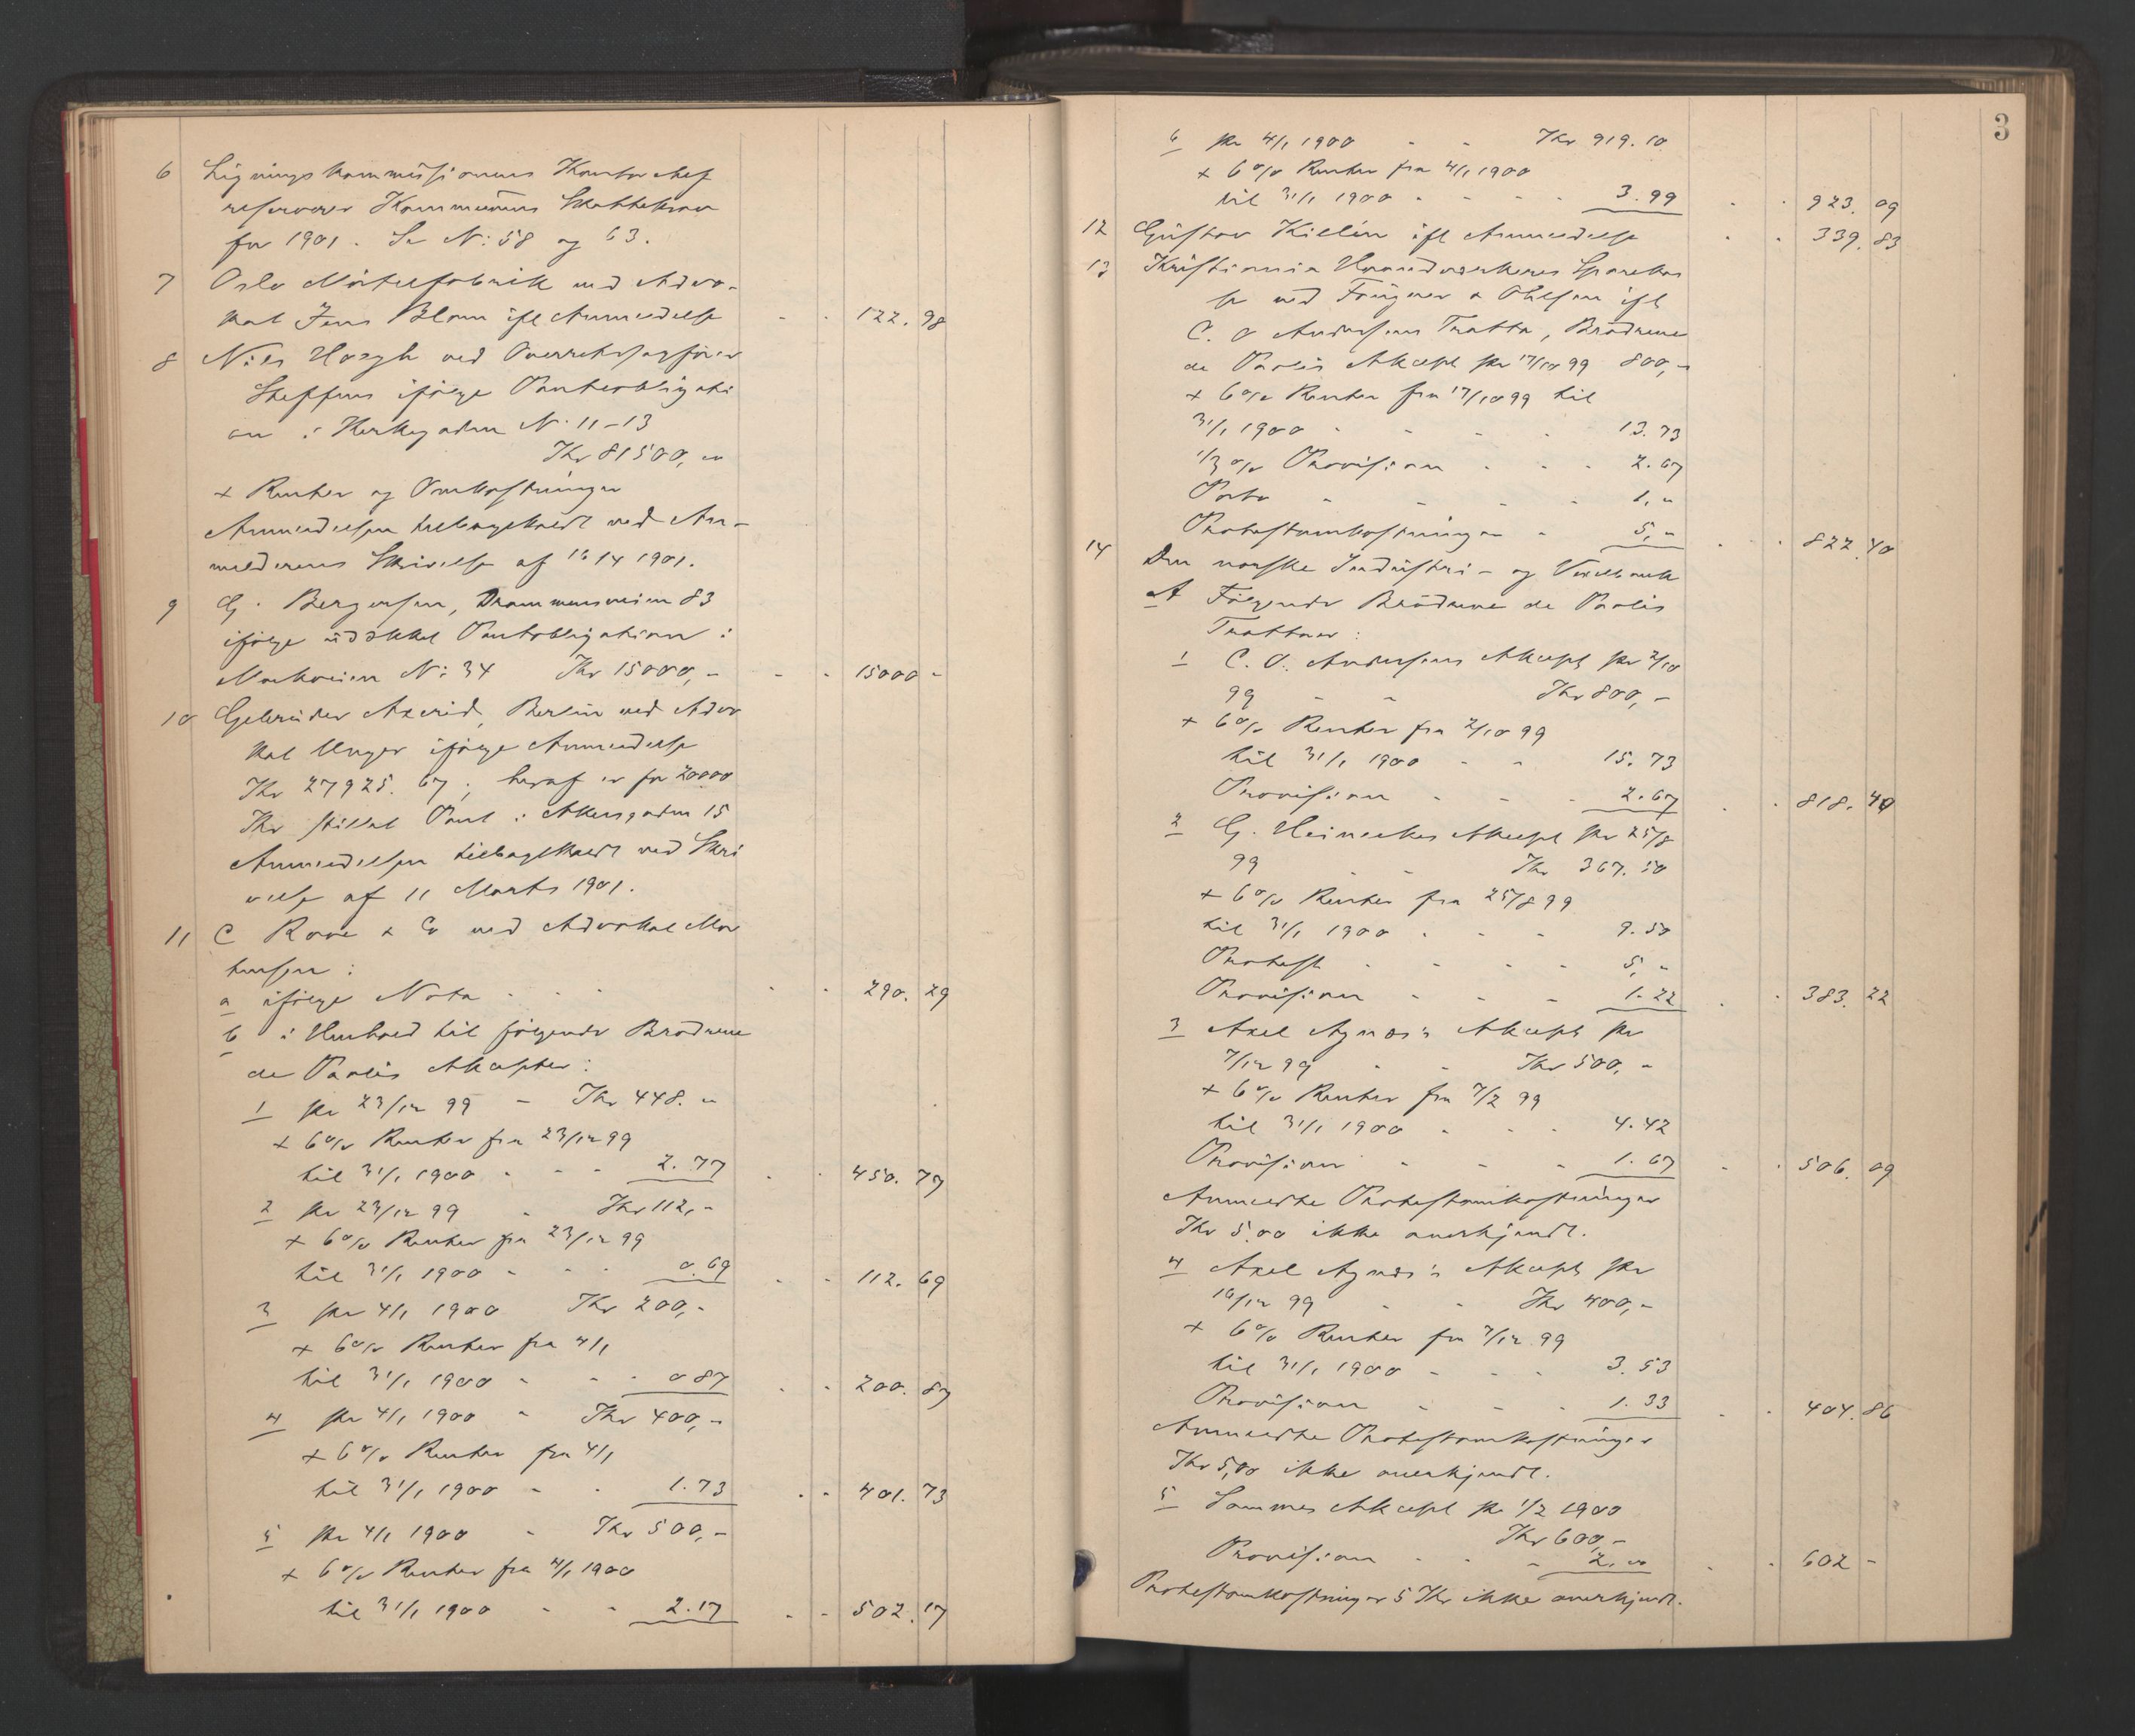 6 Ligningskommissionens Kontorchef
reserverer Kommunens Skattekrav
for 1901. Se No: 58 og 63.
7 Oslo Mørtelfabrik ved Advo-
kat Jens Blom ifl Anmeldelse - - 122. 98
8 Nils Høegh ved Overretssagfører
Steffens ifølge Panteobligati
on i Kirkegaden No 11-13
Kr 81500, "
+ Renter og Omkostninger
Anmeldelsen tilbagekaldt ved An-
melderens Skrivelse af 16/4 1901.
9 G. Bergersen, Drammensveien 83
ifølge udstedt Pantobligation i
Markveien No: 34 Kr 15000, - - - 15000 -
10 Gebrüder Axerid, Berlin ved Advo
kat Unger ifølge Anmeldelse
Kr 27925. 67, heraf er for 20000
Kr stillet Pant i Akersgaden 15
Anmeldelsen tilbagekaldt ved Skri
velse af 11 Marts 1901.
11 C Rove & Co ved Advokat Mor
tensen:
a ifølge Nota - - - - - 290. 29
b i Henhold til følgende Brødrene
de Paolis Akcepter:
1 pr 23/12 99 - Kr 448. "
+ 6% Renter fra 23/12 99
til 31/1 1900 - - - 2. 77 - - 450. 77
2 pr 23/12 99 - Kr 112, -
+ 6% Renter fra 23/12 99
til 31/1 1900 - - - 0. 69 - - 112. 69
3 pr 4/1 1900 Kr 200, -
+ 6% Renter fra 4/1
til 31/1 1900 - - - 0 87 - - 200. 87
4 pr 4/1 1900 - Kr 400, -
+ 6% Renter fra 4/1
til 31/1 1900 - - 1. 73 - - 401. 73
5 pr 4/1 1900 - Kr 500, -
+ 6% Renter fra 4/1 1900
til 31/1 1900 - - 2. 17 - - 502. 17
3
6 pr 4/1 1900 - - Kr 919. 10
+ 6% Renter fra 4/1 1900
til 31/1 1900 - - - - 3. 99 - - 923. 09
12 Gustav Killin ifl Anmeldelse - - 339. 83
13 Kristiania Haandværkeres Sparekas
se ved Fougner & Ohlsen ifl
C. O Andersens Tratta, Brødrene
de Paolis Akcept pr 17/10 99 800, -
+ 6% Renter fra 17/10 99 til
31/1 1900 - - - - 13. 73
1/3 % Provision - - - 2. 67
Porto - - - - 1, "
Protestomkostninger - 5, " - - 822. 40
14 Den norske Industri- og Vexelbank
A Følgende Brødrene de Paolis
Trattaer:
1 C. O. Andersens Akcept pr 2/10
99 - - Kr 800, -
+ 6% Renter fra 2/10 99
til 31/1 1900 - - 15. 73
Provision - - - 2. 67 - - 818. 40
2 G. Heineckes Akcept pr 25/8
99 - - Kr 367. 50
+ 6% Renter fra 25/8 99
til 31/1 1900 - - - 9. 50
Protest - - - - 5, -
Provision - - - 1. 22 - - 383. 22
3 Axel Agnæs's Akcept pr
7/12 99 - - Kr 500, -
+ 6% Renter fra 7/2 99
til 31/1 1900 - - - 4. 42
Provision - - - 1. 67 - - 506. 09
Anmeldte Protestomkostninger
Kr 5.00 ikke anerkjendt.
4 Axel Agnæs's Akcept pr
16/12 99 - - Kr 400, -
+ 6% Renter fra 7/12 99
til 31/1 1900 - - - 3. 53
Provision - - - 1. 33 - - 404. 86
Anmeldte Protestomkostninger
Kr 5,00 ikke anerkjendt.
5 Sammes Akcept pr 1/2 1900
Kr 600, -
Provision - - - 2. 00 - - 602 -
Protestomkostninger 5 Kr ikke anerkjendt.